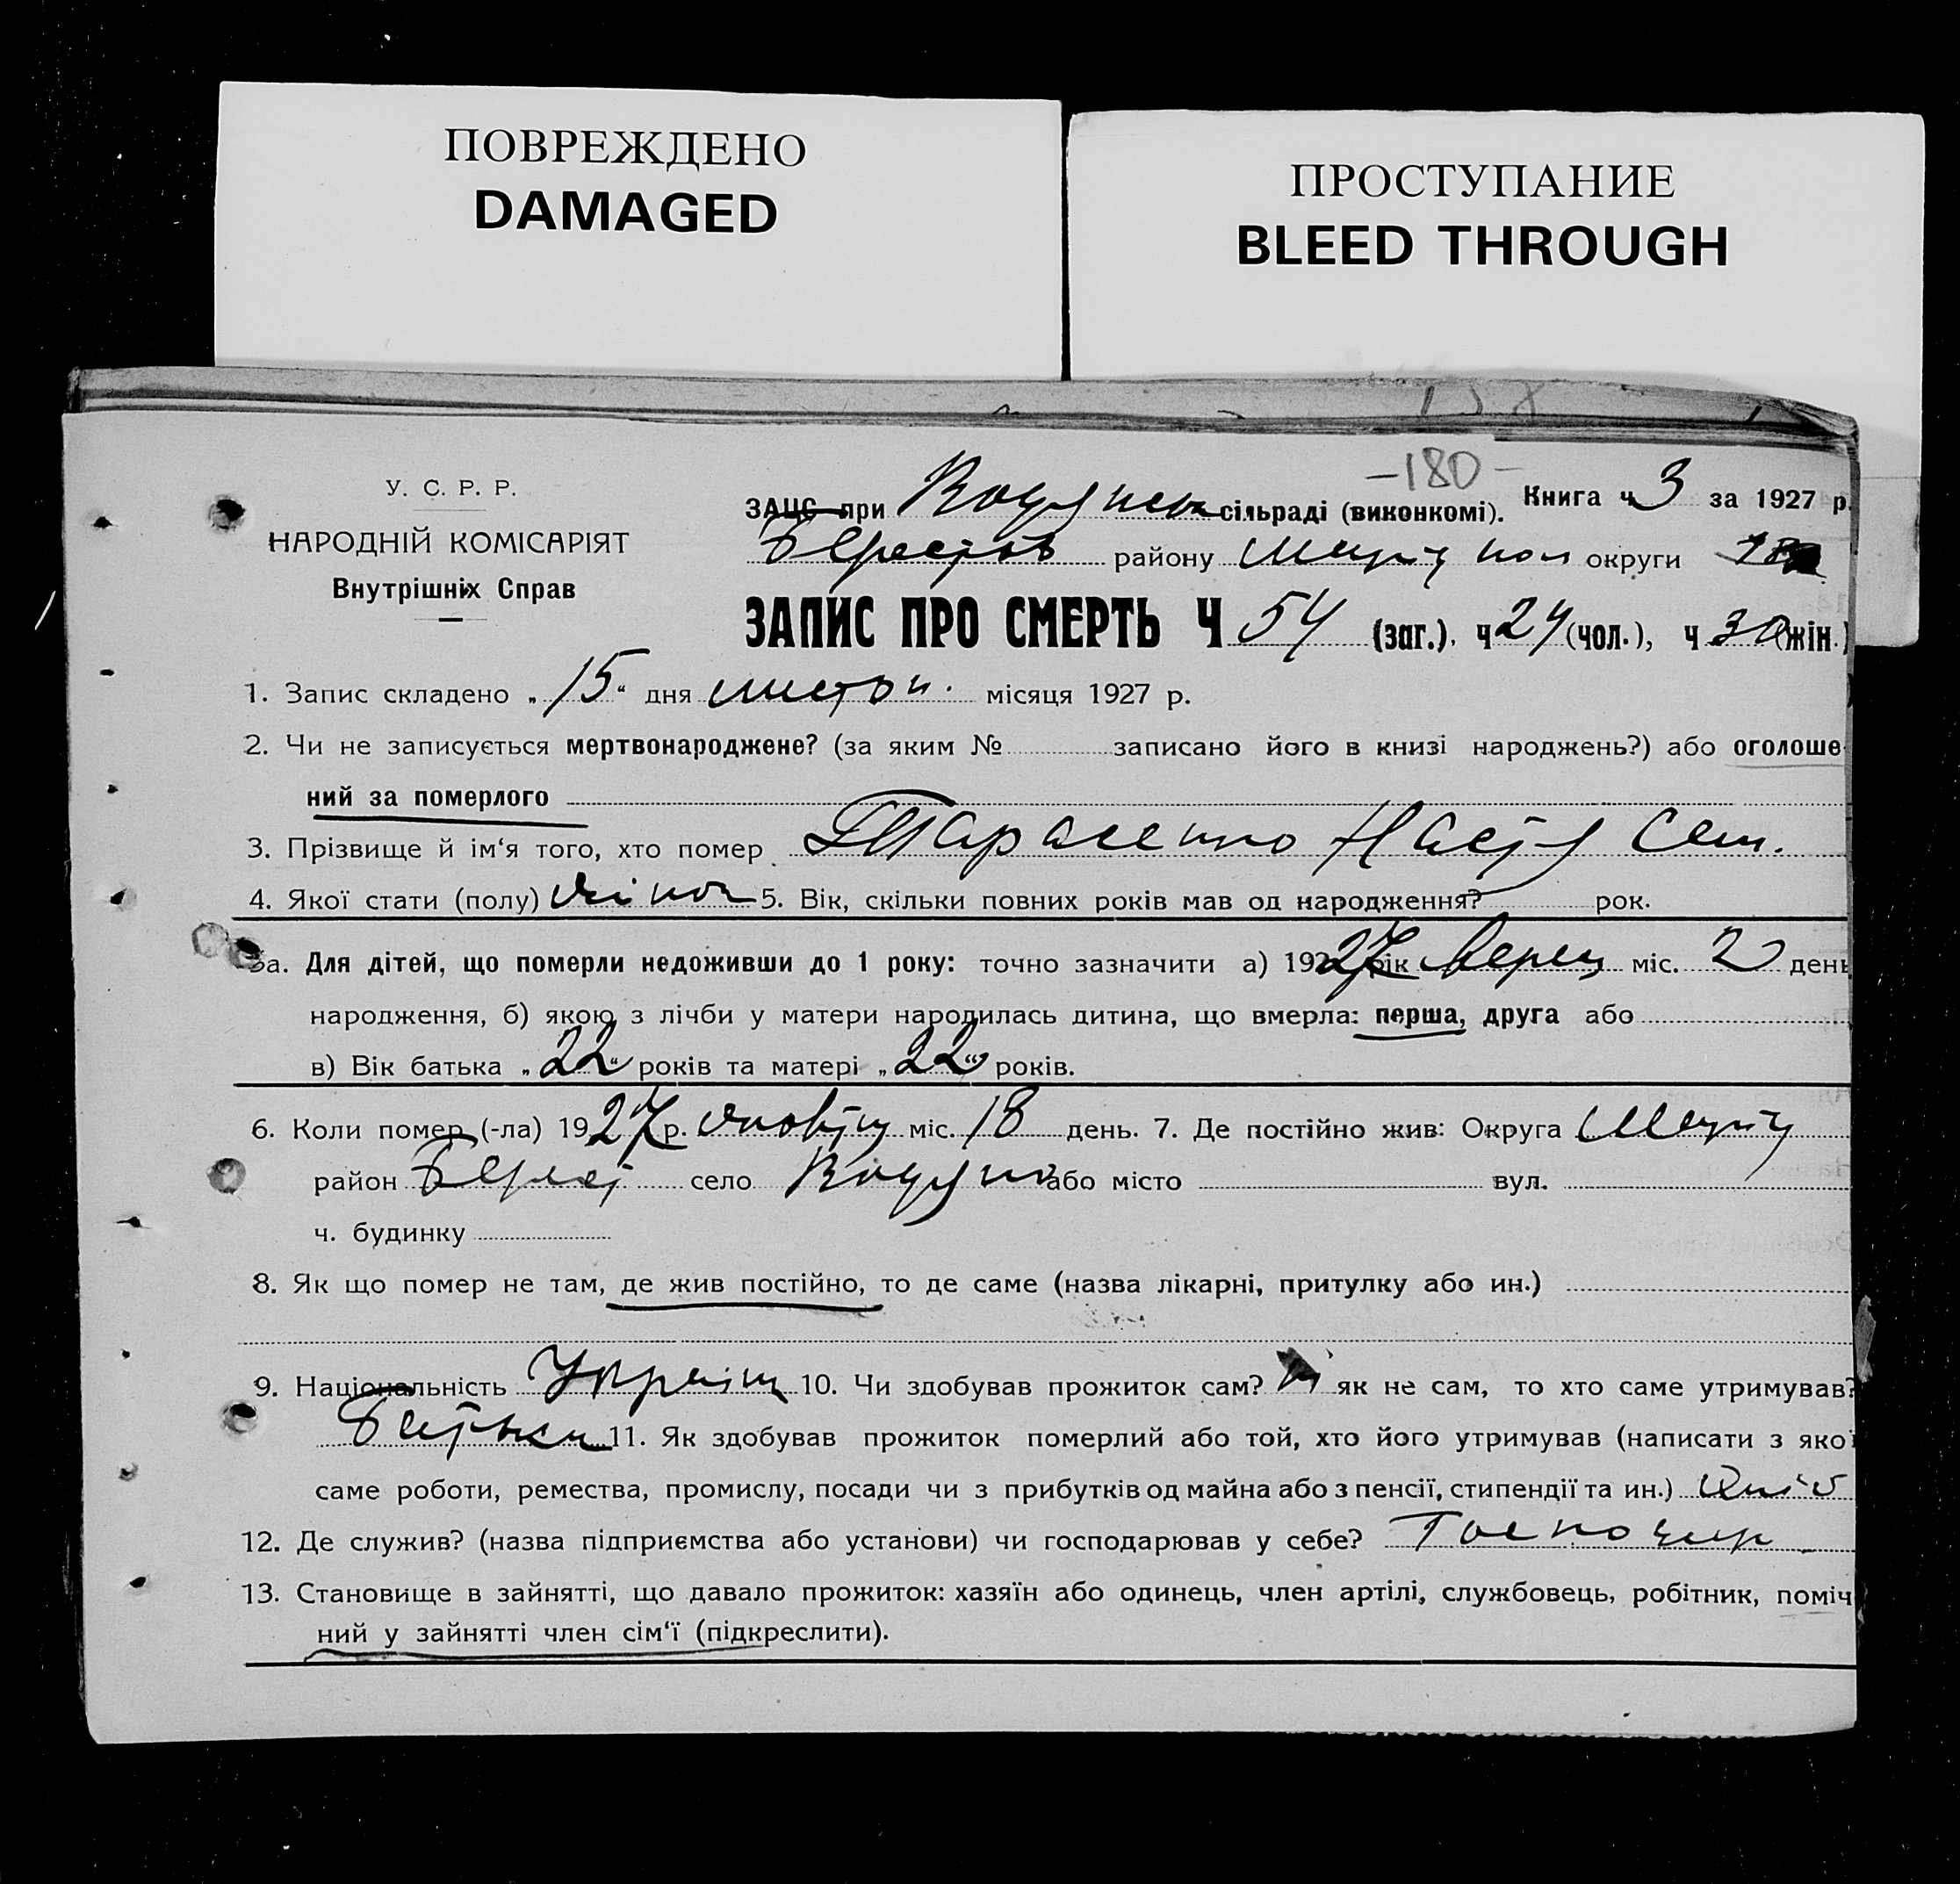 ПОВРЕЖДЕНО
DAMAGED
ПРОСТУПАНИЕ
BLEED THROUGH
-180-
У. С. Р. Р.
НАРОДНІЙ КОМІСАРІЯТ
Внутрішніх Справ
ЗАЦС при Водянск сільраді (виконкомі). Книга ч. 3 за 1927 р.
Берестов району округи
ЗАПИС ПРО СМЕРТЬ Ч 54 (заг.), ч 24 (чол.), ч 30 (жін.)
1. Запис складено „15“ дня листоп. місяця 1927 р.
2. Чи не записується мертвонароджене? (за яким № записано його в книзі народжень?) або оголоше-
ний за померлого
3. Прізвище й ім‘я того, хто помер Тарасенко Настя Сем.
4. Якої стати (полу) жіноч 5. Вік, скільки повних років мав од народження? рок.
5а. Для дітей, що померли недоживши до 1 року: точно зазначити а) 1927 рік Верес міс. 20 день
народження, б) якою з лічби у матери народилась дитина, що вмерла: перша, друга або
в) Вік батька „22“ років та матері „22“ років.
6. Коли помер (-ла) 1927 р. жовтн міс. 18 день. 7. Де постійно жив: Округа
район Берест село Водяно або місто вул.
ч. будинку
8. Як що помер не там, де жив постійно, то де саме (назва лікарні, притулку або ин.)
9. Національність Україн 10. Чи здобував прожиток сам? Ні як не сам, то хто саме утримував?
Батьки 11. Як здобував прожиток померлий або той, хто його утримував (написати з якої
саме роботи, ремества, промислу, посади чи з прибутків од майна або з пенсії, стипендії та ин.)
12. Де служив? (назва підприємства або установи) чи господарював у себе? Господар
13. Становище в зайнятті, що давало прожиток: хазяїн або одинець, член артілі, службовець, робітник, поміч
ний у зайнятті член сім‘ї (підкреслити).